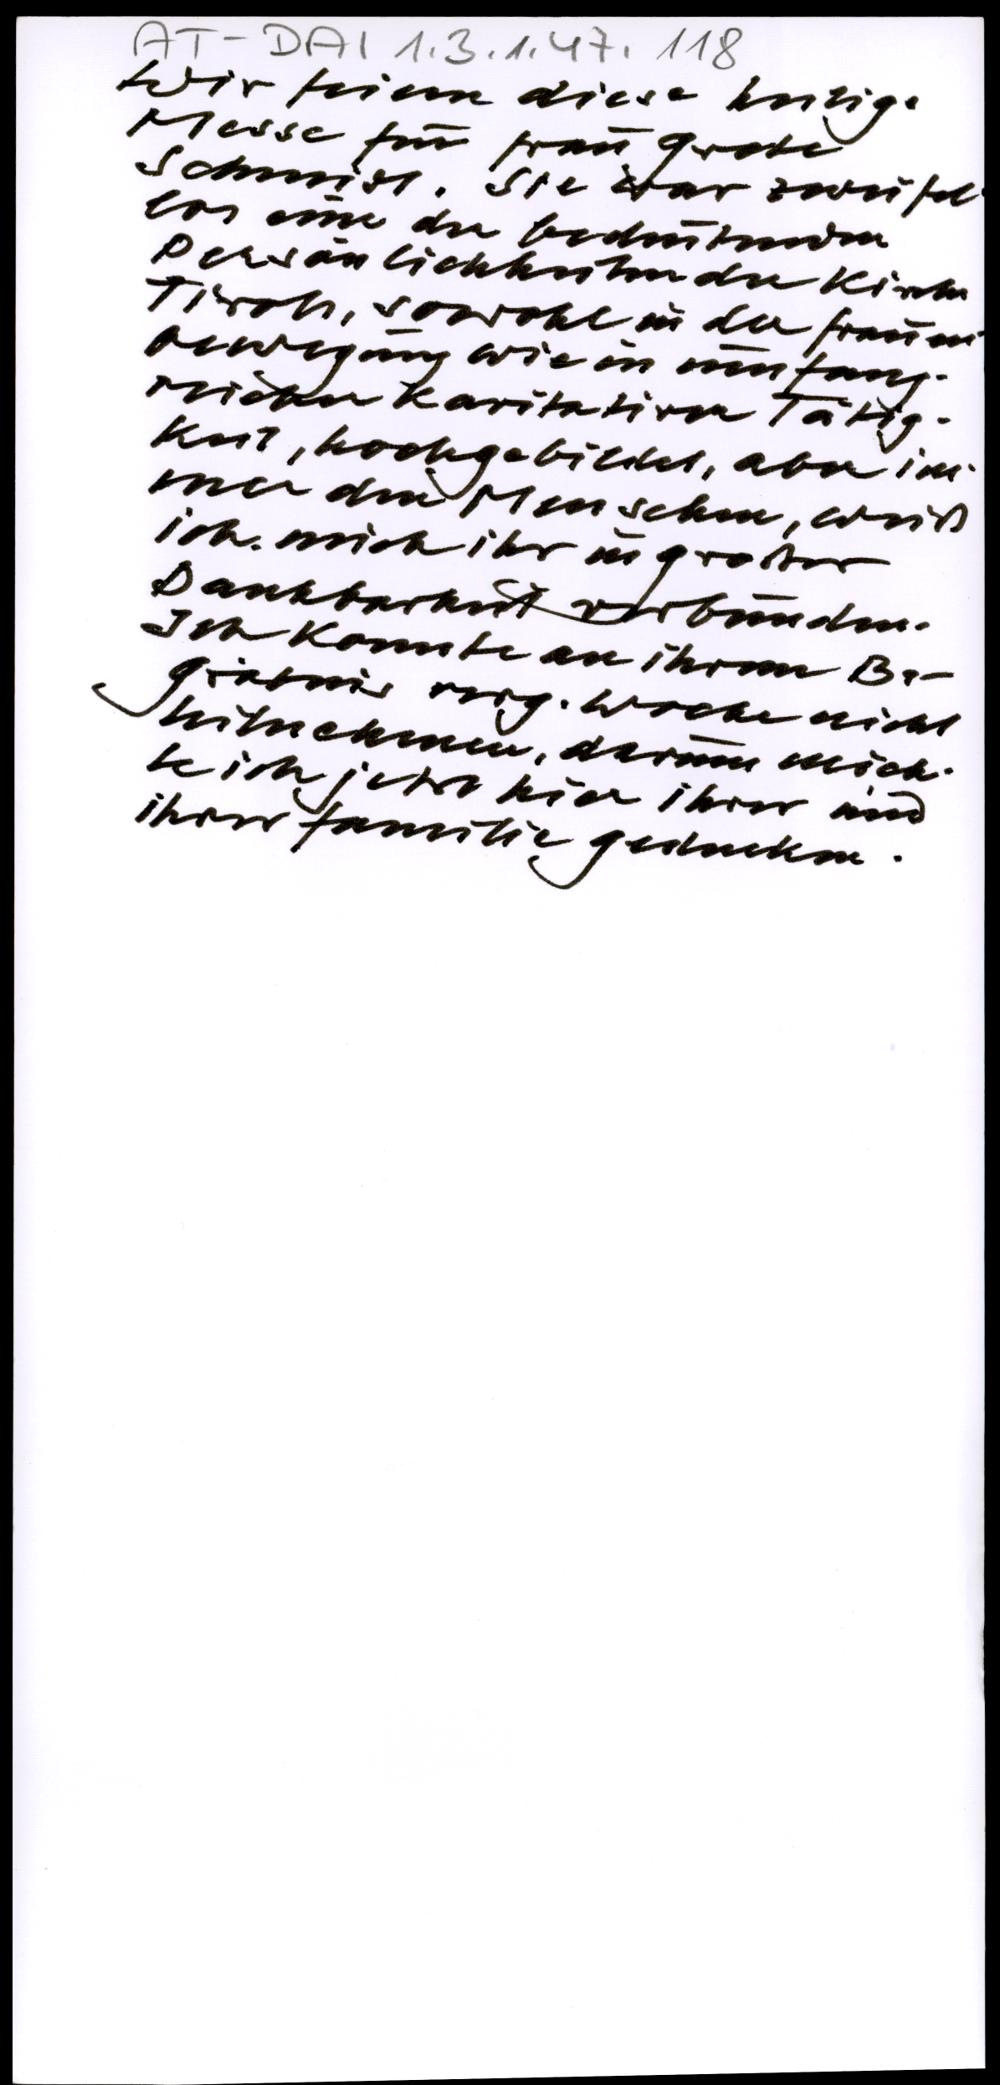 AT-DAI 1.3.1.47.118
Wir feiern diese heilige
Messe für Frau Grete
Schmidt. Sie war zweifel
los eine der bedeutenden
Persönlichkeiten der Kirche
Tirols, sowohl in der Frauen
bewegung wie in umfang-
reicher karitativer Tätig-
keit, hochgebildet, aber im
mer den Menschen, weiß
ich mich ihr in großer
Dankbarkeit verbunden.
Ich konnte an ihrem Be-
gräbnis verg. Woche nicht
teilnehmen, darum möch-
te ich jetzt hier ihrer und
ihrer Familie gedenken.